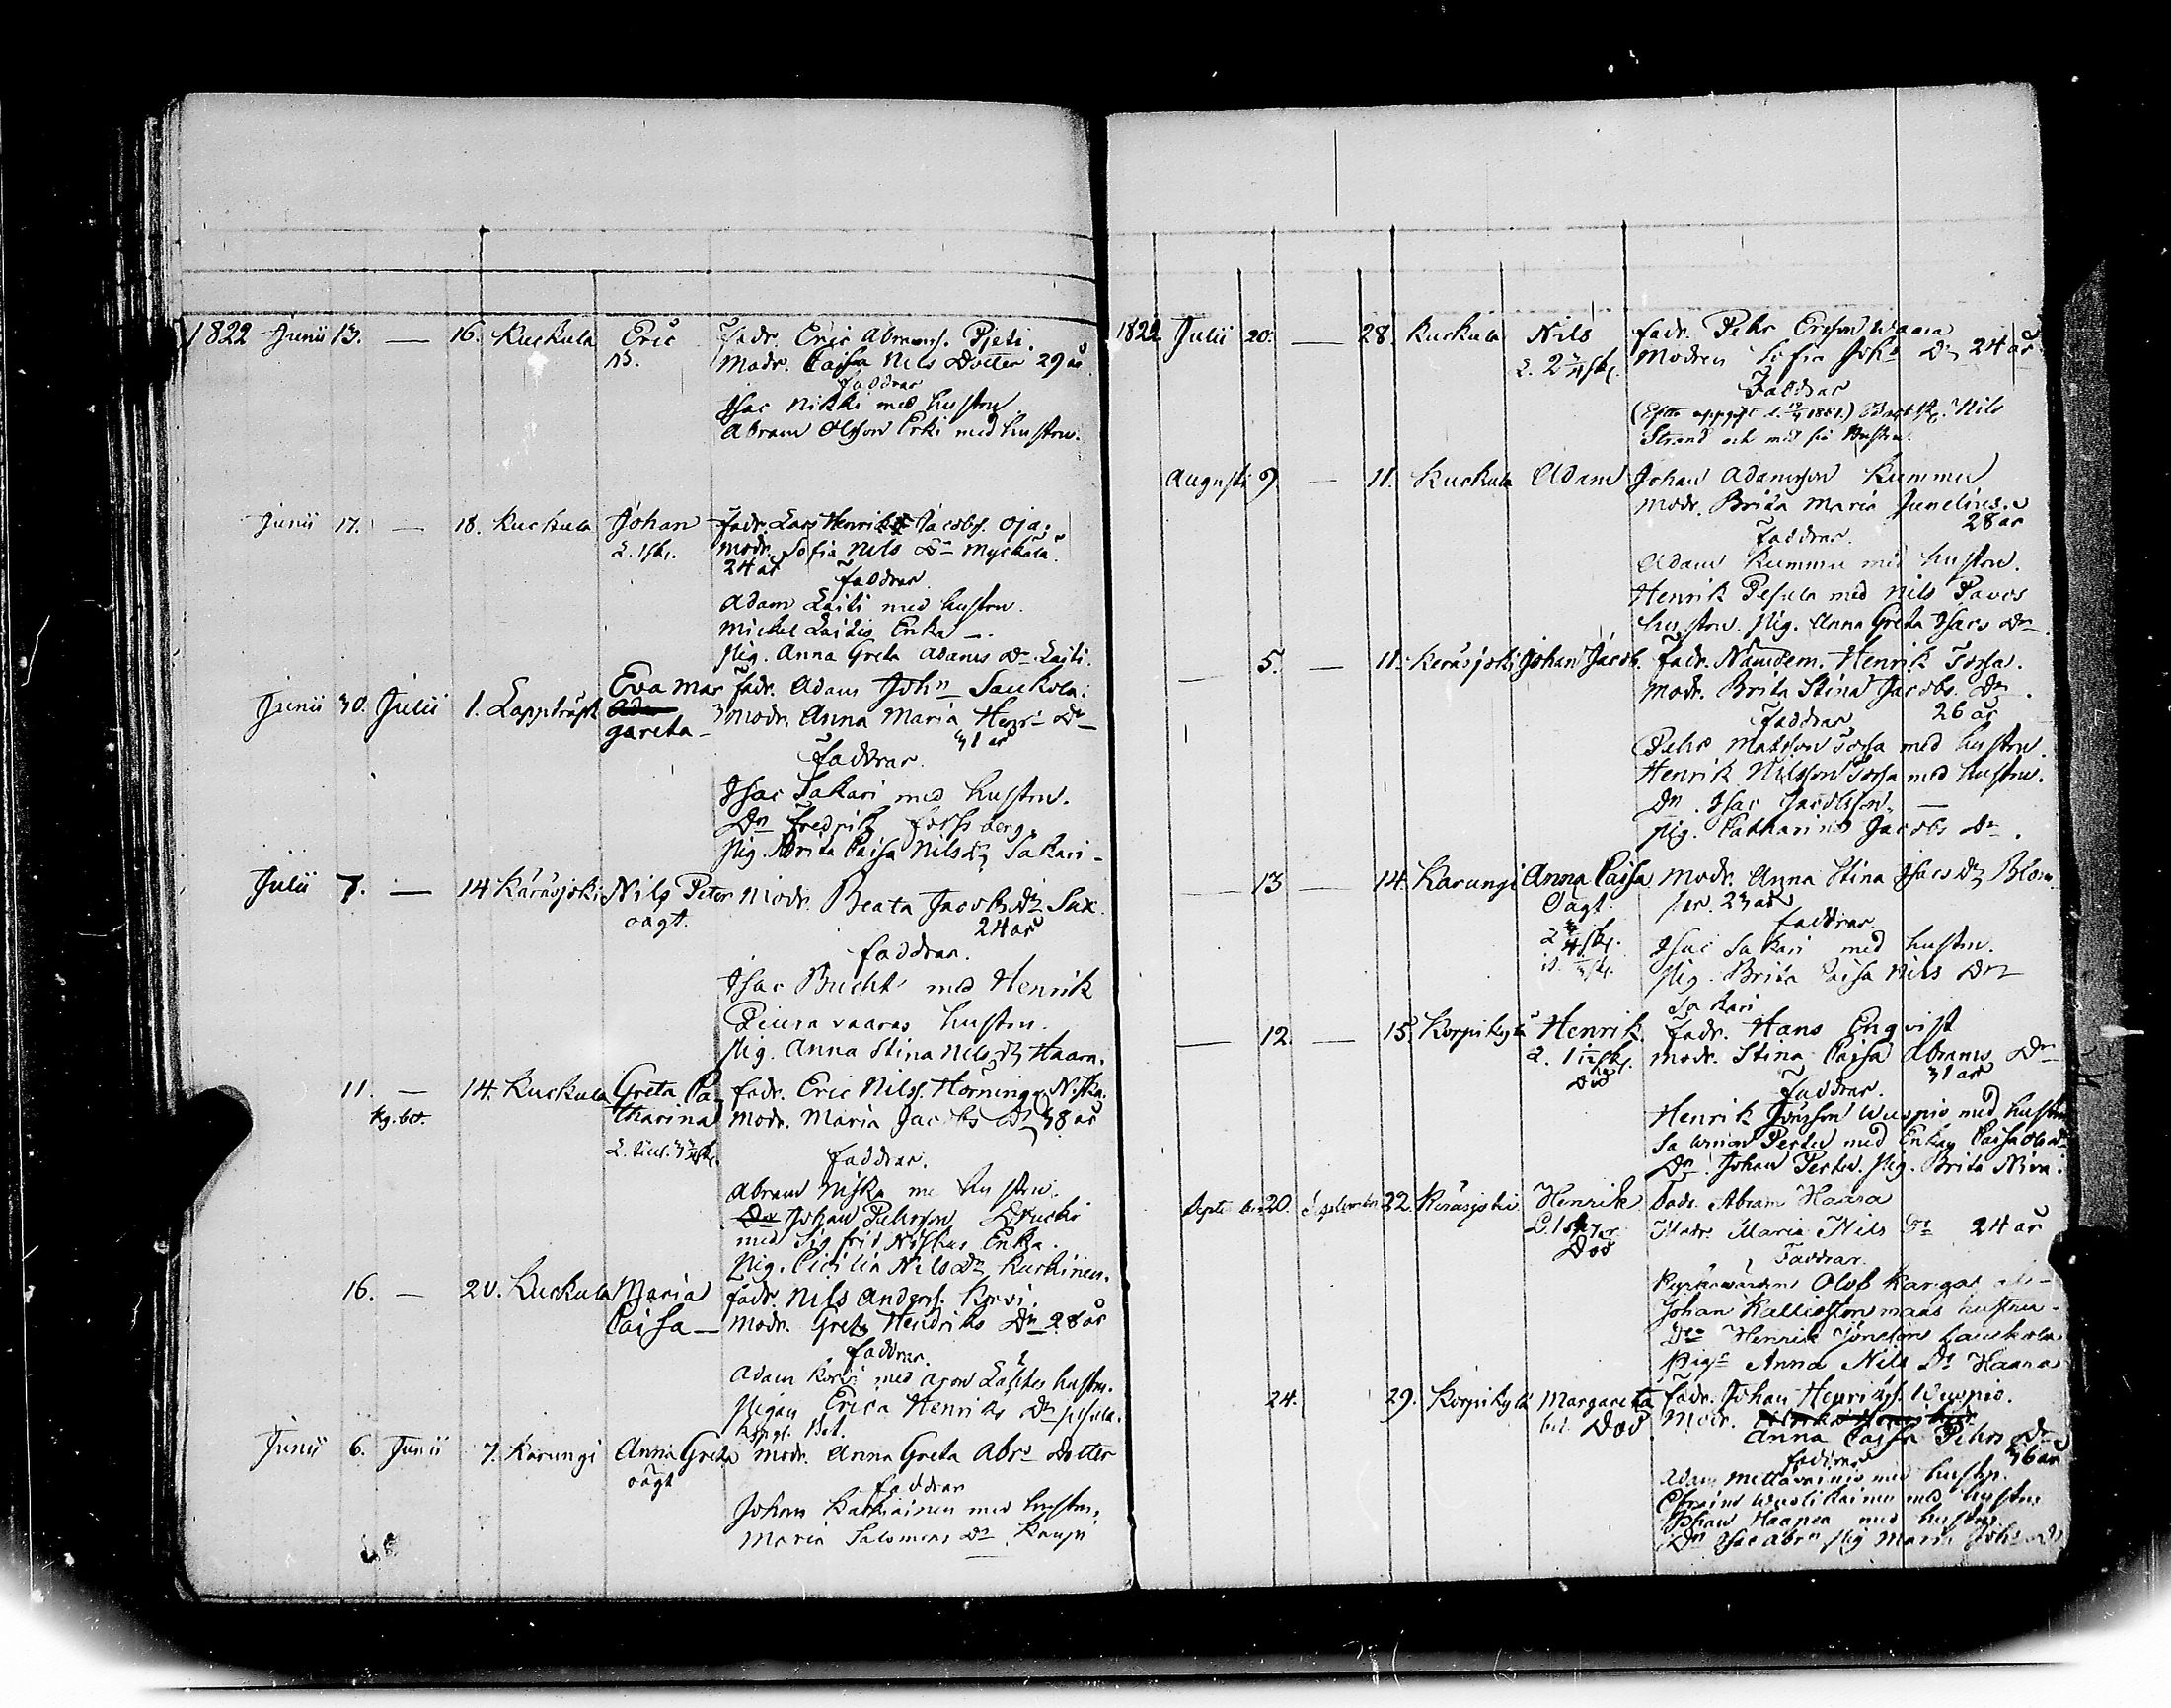 1822 Junii 13. — 16. Kuckula Eric Fadr. Eric Abramss. Pjeti.
B. Modr. Caisa Nils Dotter 29 år
Faddrar
Isac Nikki med hustru
Abram Olsson Erki med hustru.
Junii 17. — 18. Kuckula Johan fadr. Lars Henrik Jacobss. Oja;
modr. Sofia Nils Dr Myckälä.
24 år faddrar
Adam Laiti med hustru.
Michel Laitis Enka —.
Pig. Anna Greta Adams Dr Laiti.
Junii 30. Julii 1. Lappträsk Eva Mar fadr. Adam Johns Saukola.
gareta — modr. Anna Maria Henr: Dr
31 år
faddrar.
Isac Sakari med hustru.
Dn Fredrik Forssberg.
Pig. Brita Caisa Nils Dr Sakari —
Julii 7. — 14 Käräsjoki Nils Peter Modr. Beata Jacobs Dr Sax
oägt. 24 år
faddrar.
Isac Bucht med Henrik
Piuravaaras hustru.
Pig. Anna Stina Nils Dr Haara.
11. — 14. Kuckula Greta Ca- fadr. Eric Nilss. Horning Niska.
Kg. bot. tharina modr. Maria Jacobs Dr 38 år
faddrar.
Abram Niska me hustru.
Johan Pehrsson Drucki
med Sigfrid Niskas Enka.
Pig. Cicilia Nils Dr Kurkinen.
16. — 20. Kuckula Maria fadr. Nils Anderss. Korvi.
Caisa — modr. Greta Hendriks Dr 28 år
faddrar.
Adam Korvi med Aron Laities hustru.
Pigan Erica Henriks Dr Pesula.
Kyrgt. Bot.
Junii 6. Junii 7. Karungi Anna Greta modr. Anna Greta Abrs Dotter
oägt faddrar
Johan Karkiainen med hustru,
Maria Salomons Dr
1822 Julii 20. — 28. Kuckula Nils fadr. Pehr Ersson Waara
modren Sofia Johs Dr 24 år
Faddrar
Nils
Strand och med sin Hustru.
Augusti 9 — 11. Kuckula Adam Johan Adamsson Kummu
modr. Brita Maria Junelius.
28 år
Faddrar.
Adam Kummu med hustru.
Henrik Pesula med Nils Pavos
hustru. Pig. Anna Greta Isacs Dr.
— 5. — 11. Keräsjoki Johan Jacob. fadr. Nämdem. Henrik Torssa.
modr. Brita Stina Jacobs Dr.
26 år
faddrar
Pehr Matsson Torssa med hustru.
Henrik Nilsson Torssa med hustru.
Dn. Isac Jacobsson. —
Pig. Catharina Jacobs Dr.
— 13 — 14. Karungi Anna Caisa modr. Anna Stina Isacs Dr Blom
Oägt. 23 år
faddrar.
Isac Sakari med hustru.
Pig. Brita Caisa Nils Dr
Sakari
— 12. — 15. Korpikylä Henrik fadr. Hans Enqvist
Död modr. Stina Caisa Abrams Dr
31 år
Faddrar.
Henrik Jönsson Wuopio med hustru
Salomon Pertu med Enkan Caisa Ols Dr
Dn. Johan Pertu. Pig. Brita Niva.
September 20. September 22. Keräsjoki Henrik Fadr. Abram Haara
Död Modr. Maria Nils Dr 24 år
Faddrar.
Kyrkovärden Olof Kangas
Johan Kalliostonmaas hustru —
Dn Henrik Jönsson Laukola
Pign Anna Nils Dr Haara
24. 29. Korpikylä Margareta fadr. Johan Henrikss. Wuopio.
Död. Modr.
Anna Caisa Pehrs Dr
faddrar 36 år
Adam Mettävainio med hustru.
Efraim Wuolikainen med hustru
Johan Haapea med hustru
Dn Isac Abrs Pig Maria Johs Dr